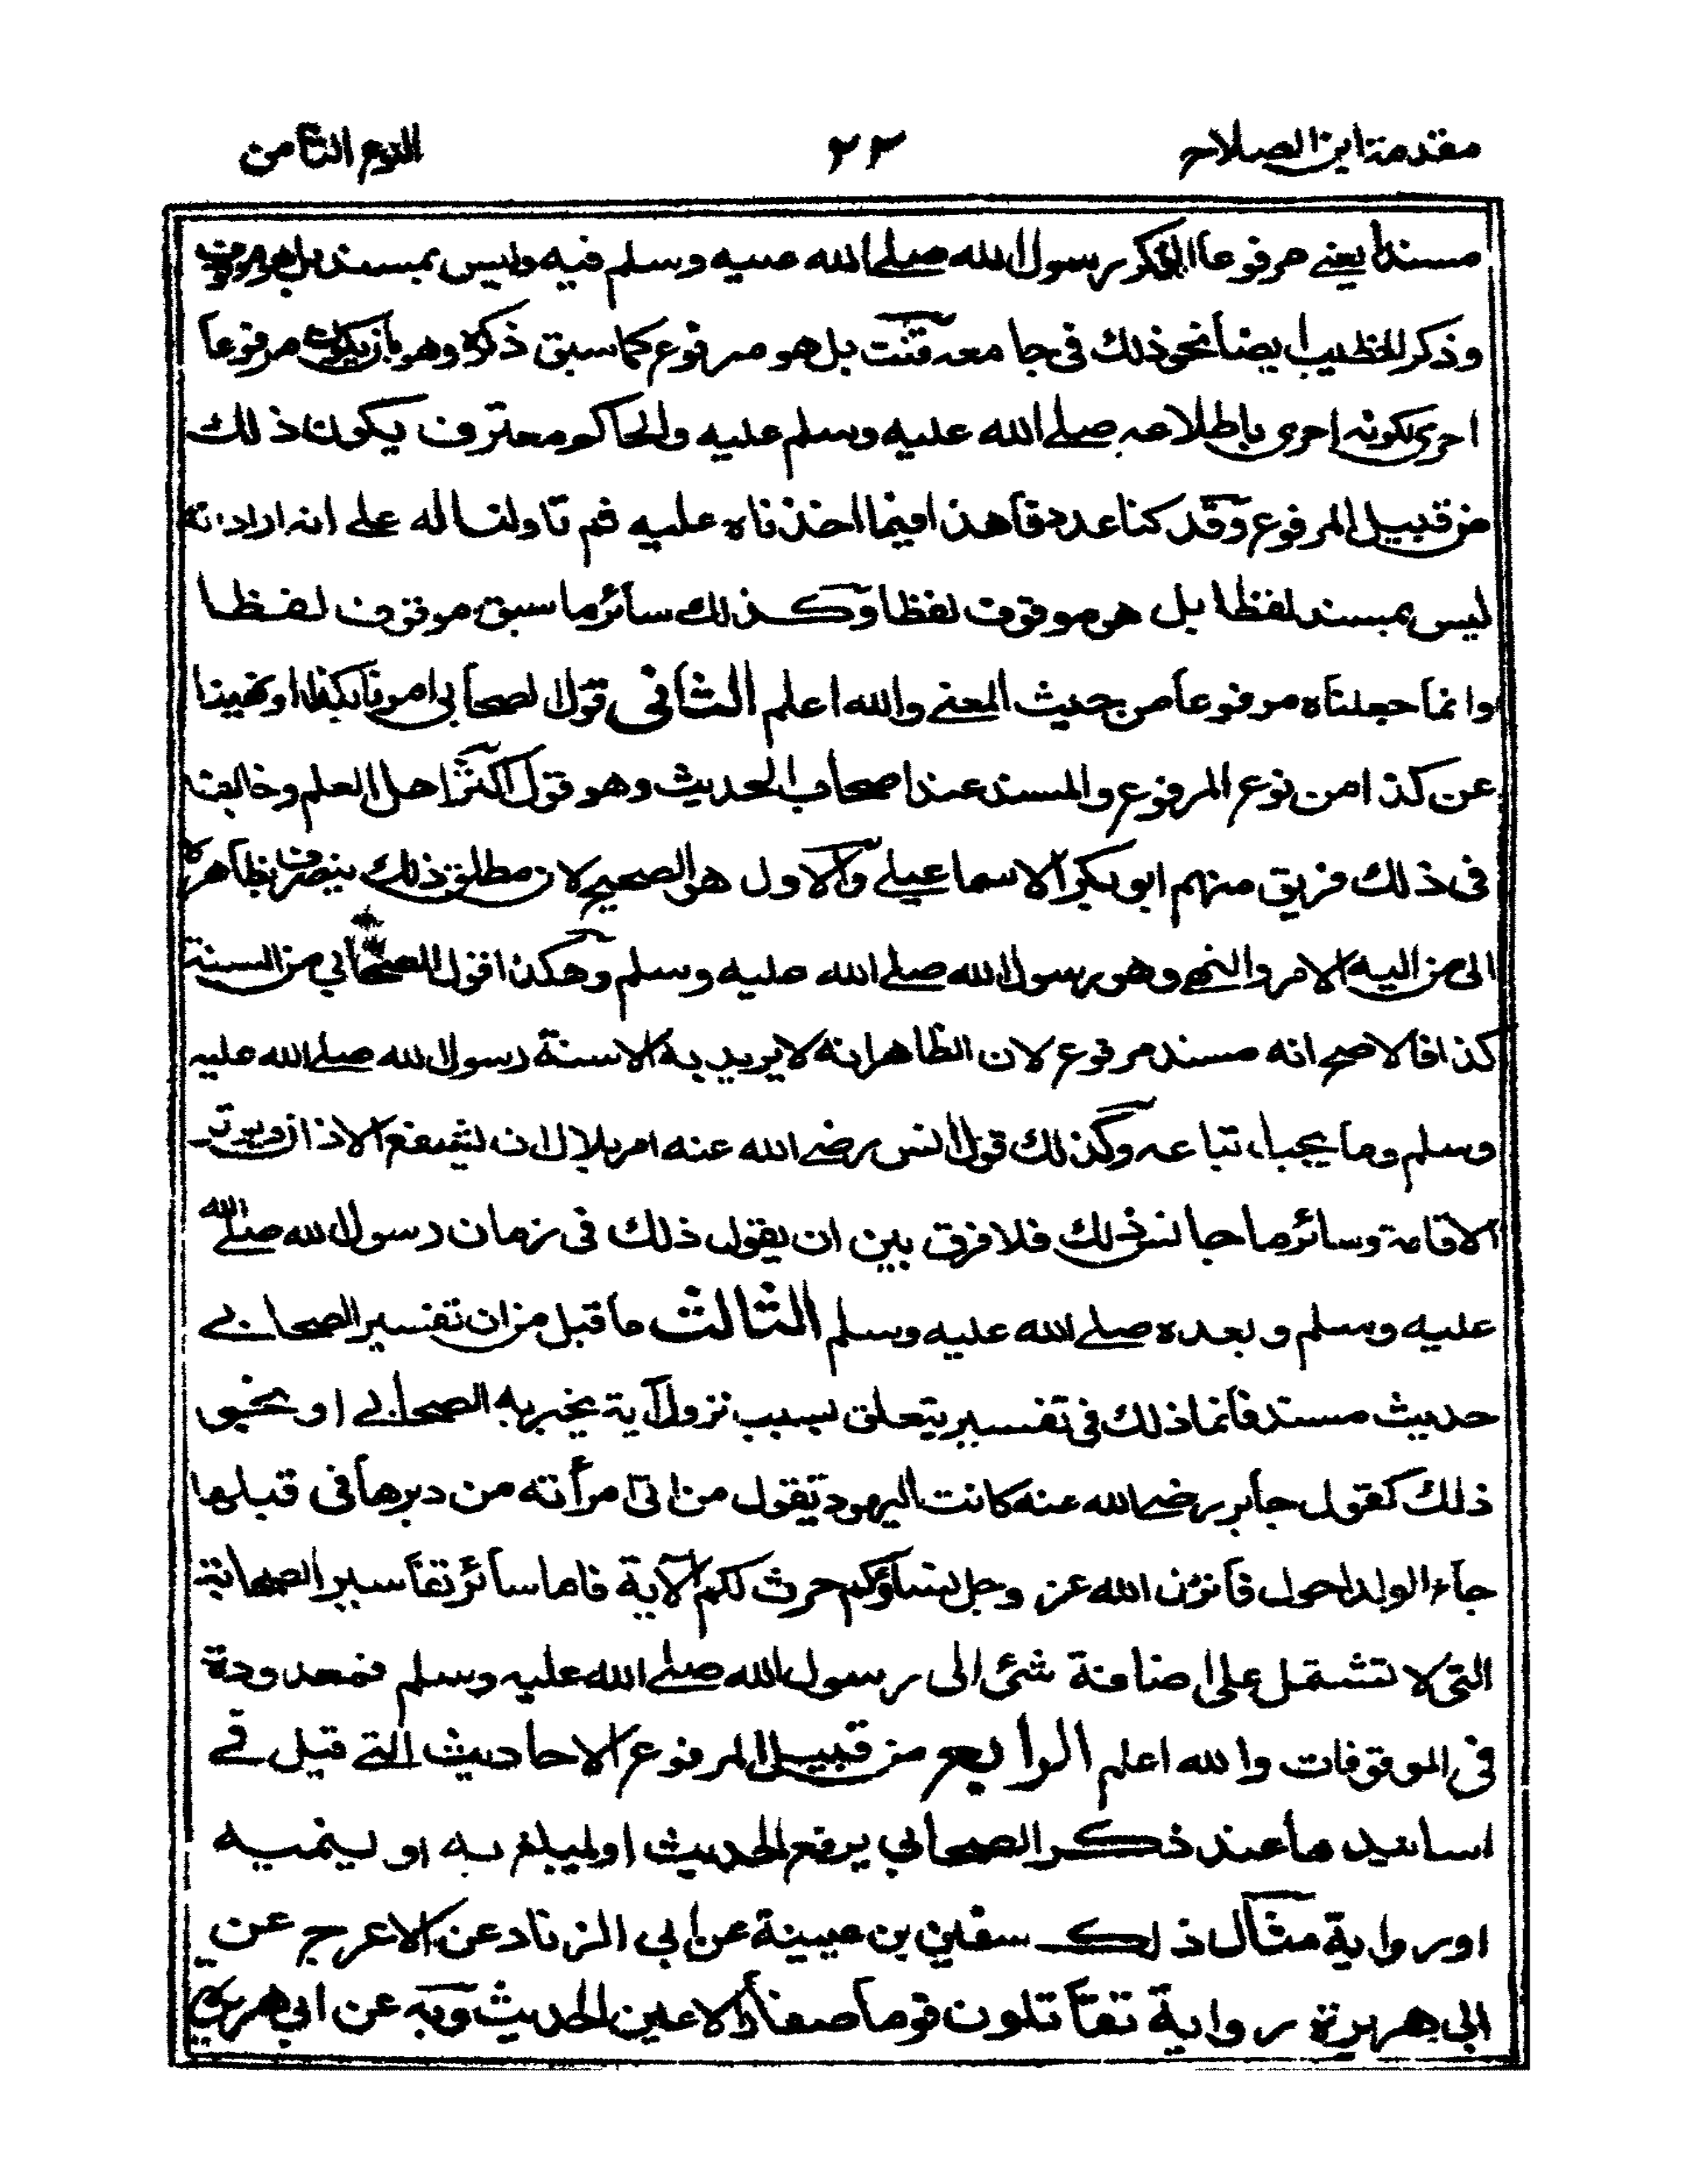 مقدمة ابن الصلاح ٢٢ النوع الثامن
مسندا يعني مرفوعا لذكر رسول الله صلى الله عليه وسلم فيه وليس بمسند بل هو موقوف
وذكر الخطيب ايضا نحو ذلك في جامعه قلت بل هو مرفوع كما سبق ذكره وهو بان يكون مرفوعا
احرى لكونه احرى باطلاعه صلى الله عليه وسلم عليه والحاكم معترف بكون ذلك
من قبيل المرفوع وقد كنا عددنا هذا فيما اخذناه عليه ثم تاولناه له على انه اراد انه
ليس بمسند لفظا بل هو موقوف لفظا وكذلك سائر ما سبق موقوف لفظا
وانما جعلناه مرفوعا من حيث المعنى والله اعلم الثاني قول الصحابي امرنا بكذا او نهينا
عن كذا من نوع المرفوع والمسند عند اصحاب الحديث وهو قول اكثر اهل العلم وخالف
في ذلك فريق منهم ابو بكر الاسماعيلي والاول هو الصحيح لان مطلق ذلك ينصرف بظاهره
الى من اليه الامر والنهي وهو رسول الله صلى الله عليه وسلم وهكذا قول الصحابي من السنة
كذا فالاصح انه مسند مرفوع لان الظاهر انه لا يريد به الا سنة رسول الله صلى الله عليه
وسلم وما يجب اتباعه وكذلك قول انس رضي الله عنه امر بلال ان يشفع الاذان ويوتر
الاقامة وسائر ما جانس ذلك فلا فرق بين ان يقول ذلك في زمان رسول الله صلى الله
عليه وسلم وبعده صلى الله عليه وسلم الثالث ما قيل من ان تفسير الصحابي
حديث مسند فانما ذلك في تفسير يتعلق بسبب نزول آية يخبر به الصحابي او نحو
ذلك كقول جابر رضي الله عنه كانت اليهود تقول من اتى امرأته من دبرها في قبلها
جاء الولد احول فانزل الله عز وجل نساؤكم حرث لكم الآية فاما سائر تفاسير الصحابة
التي لا تشتمل على اضافة شئ الى رسول الله صلى الله عليه وسلم فمعدودة
في الموقوفات والله اعلم الرابع من قبيل المرفوع الاحاديث التي قيل في
اسانيدها عند ذكر الصحابي يرفع الحديث او يبلغ به او ينميه
او رواية مثال ذلك سفين بن عيينة عن ابي الزناد عن الاعرج عن
ابي هريرة رواية تقاتلون قوما صغار الاعين الحديث وبه عن ابي هريرة